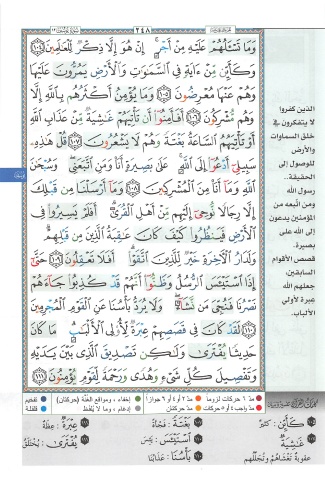 سورة يوسف ١٢
٢٤٨
وَمَا تَسْـَٔلُهُمْ عَلَيْهِ مِنْ أَجْرٍ ۚ إِنْ هُوَ إِلَّا ذِكْرٌ لِّلْعَـٰلَمِينَ ١٠٤
وَكَأَيِّن مِّنْ ءَايَةٍ فِى ٱلسَّمَـٰوَٰتِ وَٱلْأَرْضِ يَمُرُّونَ عَلَيْهَا
وَهُمْ عَنْهَا مُعْرِضُونَ ١٠٥ وَمَا يُؤْمِنُ أَكْثَرُهُم بِٱللَّهِ إِلَّا
وَهُم مُّشْرِكُونَ ١٠٦ أَفَأَمِنُوٓا۟ أَن تَأْتِيَهُمْ غَـٰشِيَةٌ مِّنْ عَذَابِ ٱللَّهِ
أَوْ تَأْتِيَهُمُ ٱلسَّاعَةُ بَغْتَةً وَهُمْ لَا يَشْعُرُونَ ١٠٧ قُلْ هَـٰذِهِۦ
سَبِيلِىٓ أَدْعُوٓا۟ إِلَى ٱللَّهِ ۚ عَلَىٰ بَصِيرَةٍ أَنَا۠ وَمَنِ ٱتَّبَعَنِى ۖ وَسُبْحَـٰنَ
ٱللَّهِ وَمَآ أَنَا۠ مِنَ ٱلْمُشْرِكِينَ ١٠٨ وَمَآ أَرْسَلْنَا مِن قَبْلِكَ
إِلَّا رِجَالًا نُّوحِىٓ إِلَيْهِم مِّنْ أَهْلِ ٱلْقُرَىٰٓ ۗ أَفَلَمْ يَسِيرُوا۟ فِى
ٱلْأَرْضِ فَيَنظُرُوا۟ كَيْفَ كَانَ عَـٰقِبَةُ ٱلَّذِينَ مِن قَبْلِهِمْ ۗ
وَلَدَارُ ٱلْـَٔاخِرَةِ خَيْرٌ لِّلَّذِينَ ٱتَّقَوْا۟ ۗ أَفَلَا تَعْقِلُونَ ١٠٩ حَتَّىٰٓ
إِذَا ٱسْتَيْـَٔسَ ٱلرُّسُلُ وَظَنُّوٓا۟ أَنَّهُمْ قَدْ كُذِبُوا۟ جَآءَهُمْ
نَصْرُنَا فَنُجِّىَ مَن نَّشَآءُ ۖ وَلَا يُرَدُّ بَأْسُنَا عَنِ ٱلْقَوْمِ ٱلْمُجْرِمِينَ
١١٠ لَقَدْ كَانَ فِى قَصَصِهِمْ عِبْرَةٌ لِّأُو۟لِى ٱلْأَلْبَـٰبِ ۗ مَا كَانَ
حَدِيثًا يُفْتَرَىٰ وَلَـٰكِن تَصْدِيقَ ٱلَّذِى بَيْنَ يَدَيْهِ
وَتَفْصِيلَ كُلِّ شَىْءٍ وَهُدًى وَرَحْمَةً لِّقَوْمٍ يُؤْمِنُونَ ١١١
الذين كفروا
لا يتفكرون في
خلق السماوات
والأرض
للوصول إلى
الحقيقة..
رسول الله
ومن اتّبعه من
المؤمنين يدعون
إلى الله على
بصيرة..
قصص الأقوام
السابقين،
جعلهم الله
عبرة لأولي
الألباب.
مدّ ٦ حركات لزوماً مدّ ٢ أو ٤ أو ٦ جوازاً إخفاء، ومواقع الغنّة (حركتان) تفخيم
مدّ واجب ٤ أو ٥ حركات مدّ حركتان إدغام، وما لا يُلفظ قلقلة
كَأَيِّن : كم بَغْتَةً : فجأة عِبْرَةٌ : عظة
غَـٰشِيَةٌ : ٱسْتَيْـَٔسَ : يئس يُفْتَرَىٰ : يُختلق
عقوبة تغشاهم وتجلّلهم بَأْسُنَا : عذابنا